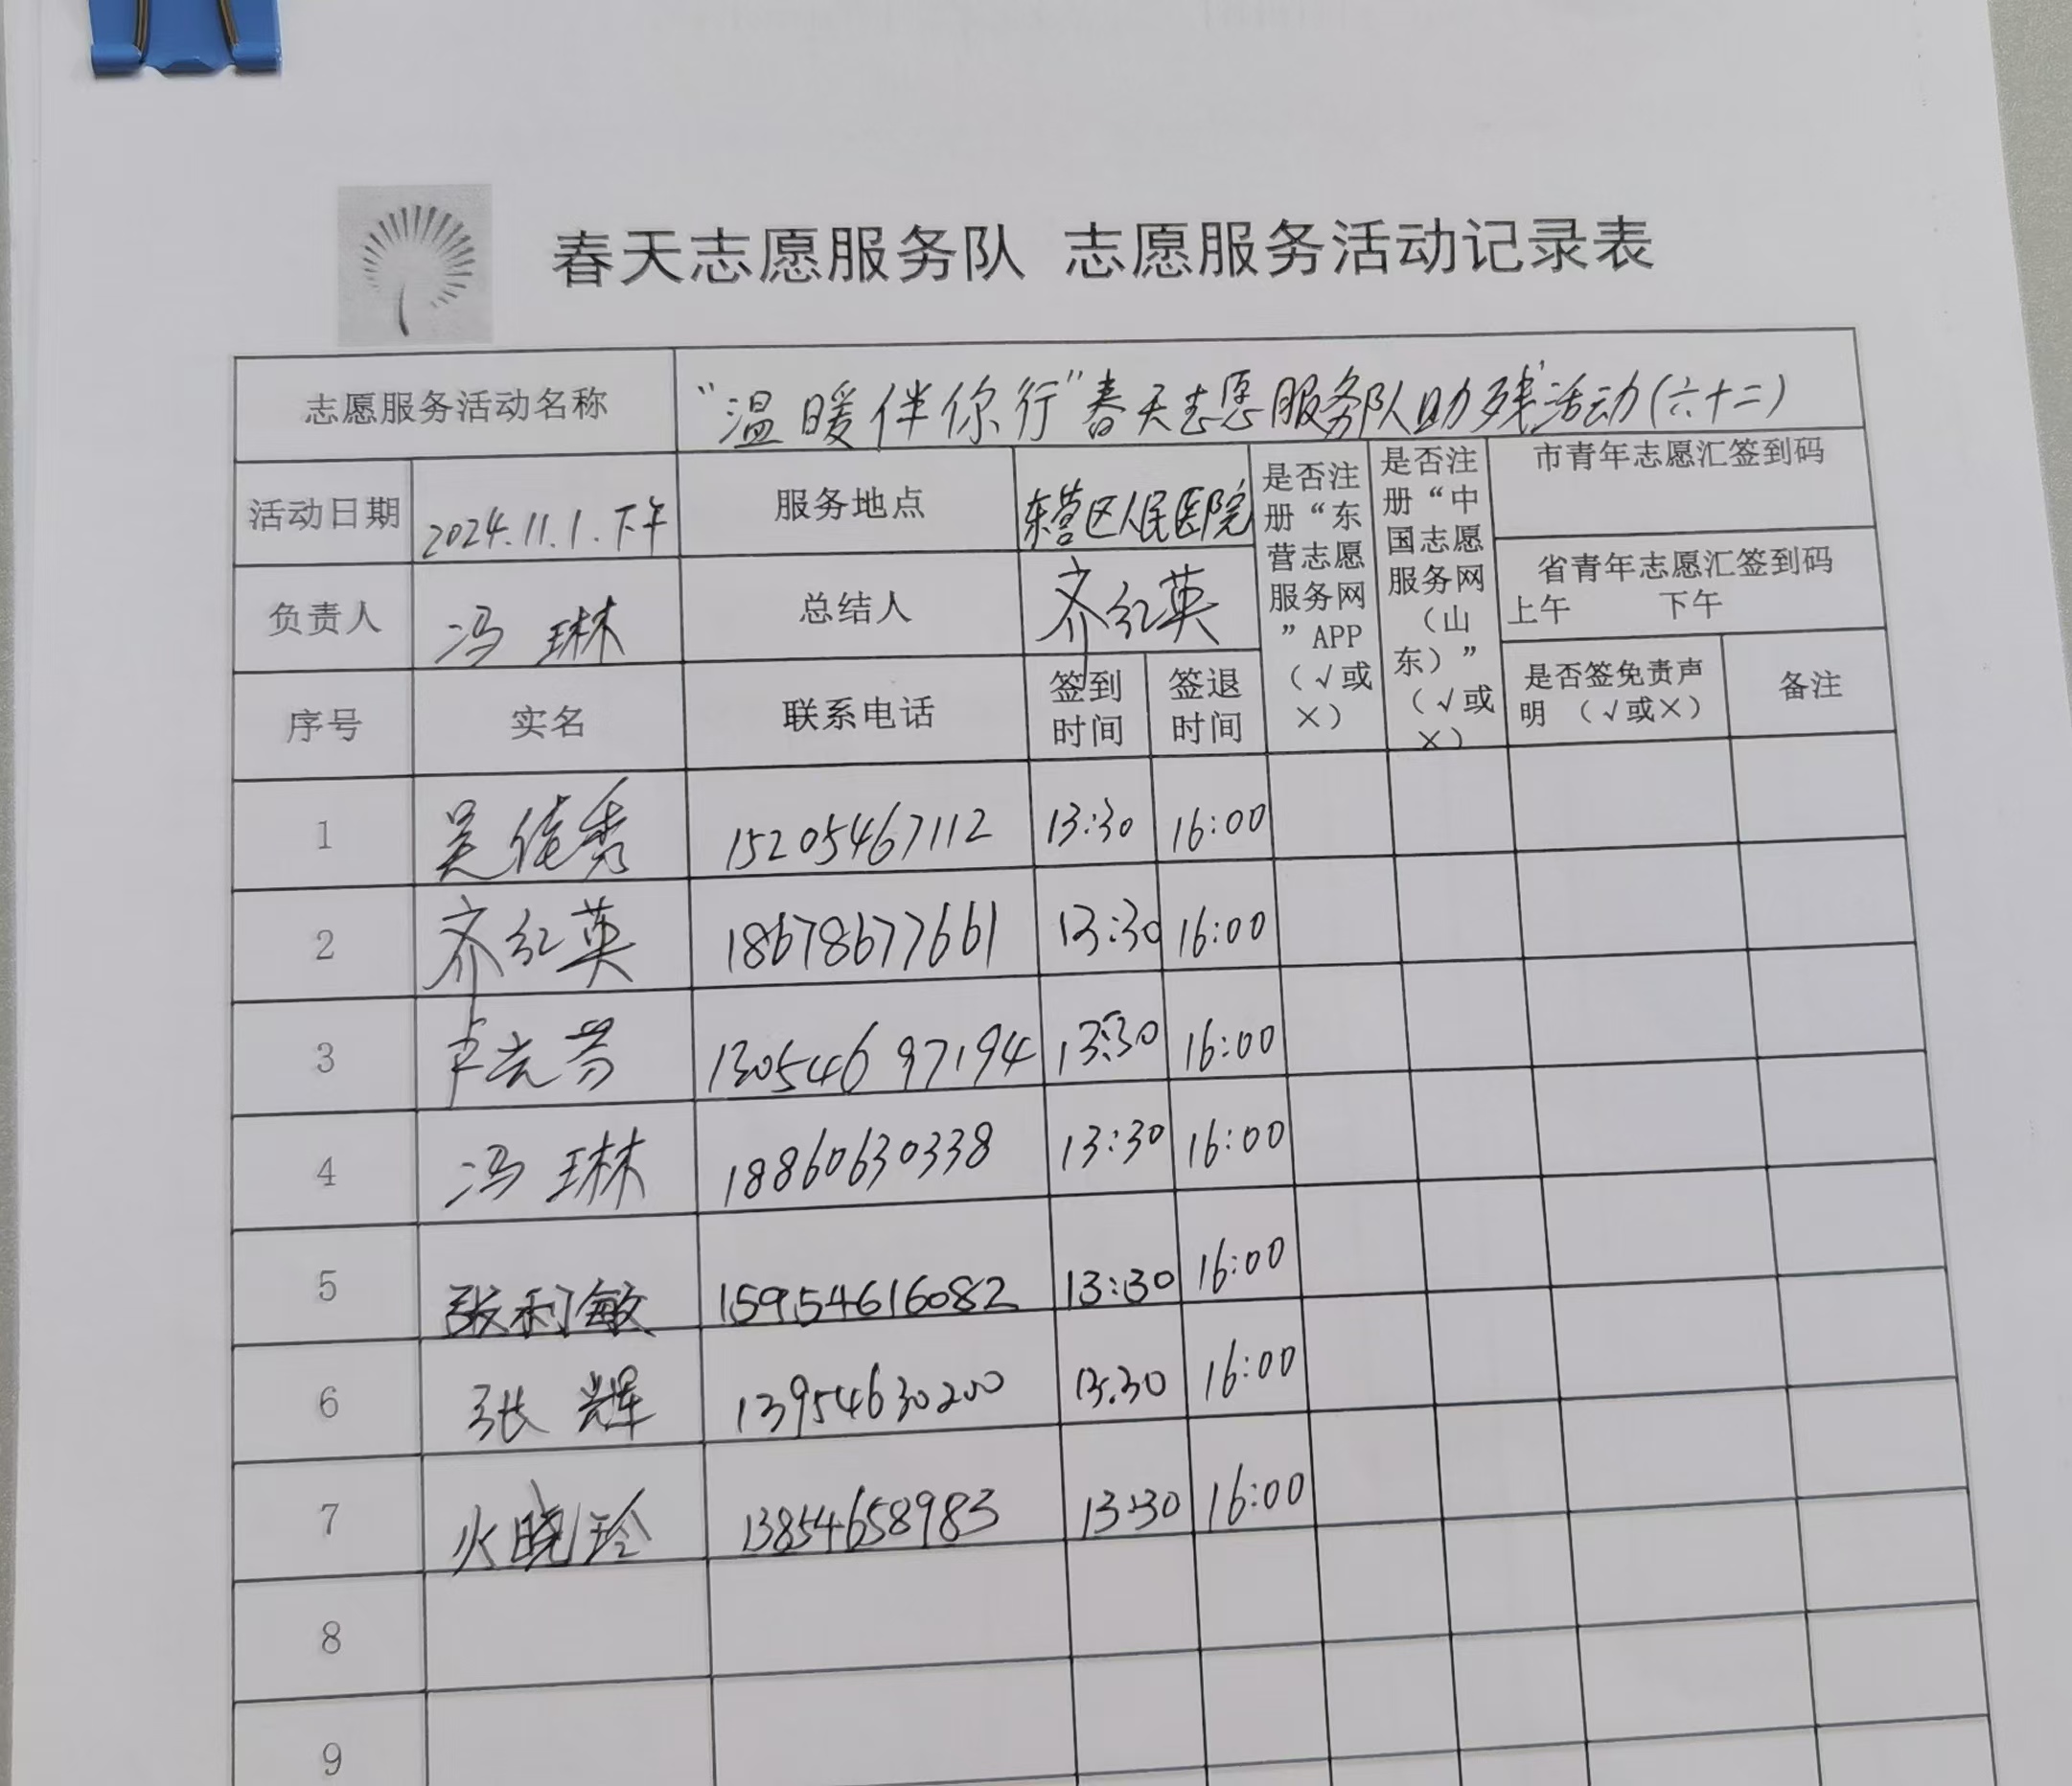 春天志愿服务队 志愿服务活动记录表
志愿服务活动名称 “温暖伴你行”春天志愿服务队助残活动(六十二)
活动日期 2024.11.1.下午 服务地点 东营区人民医院
是否注册“东营志愿服务网”APP（√或×）
是否注册“中国志愿服务网（山东）”（√或×）
市青年志愿汇签到码
省青年志愿汇签到码
上午 下午
负责人 冯琳 总结人 齐红英
序号 实名 联系电话 签到时间 签退时间 是否签免责声明（√或×） 备注
1 吴倩秀 15205467112 13:30 16:00
2 齐红英 18678677661 13:30 16:00
3 13054697194 13:30 16:00
4 冯琳 18860630338 13:30 16:00
5 张利敏 15954616082 13:30 16:00
6 张辉 13954630200 13.30 16:00
7 火晓玲 13854658983 13:30 16:00
8
9